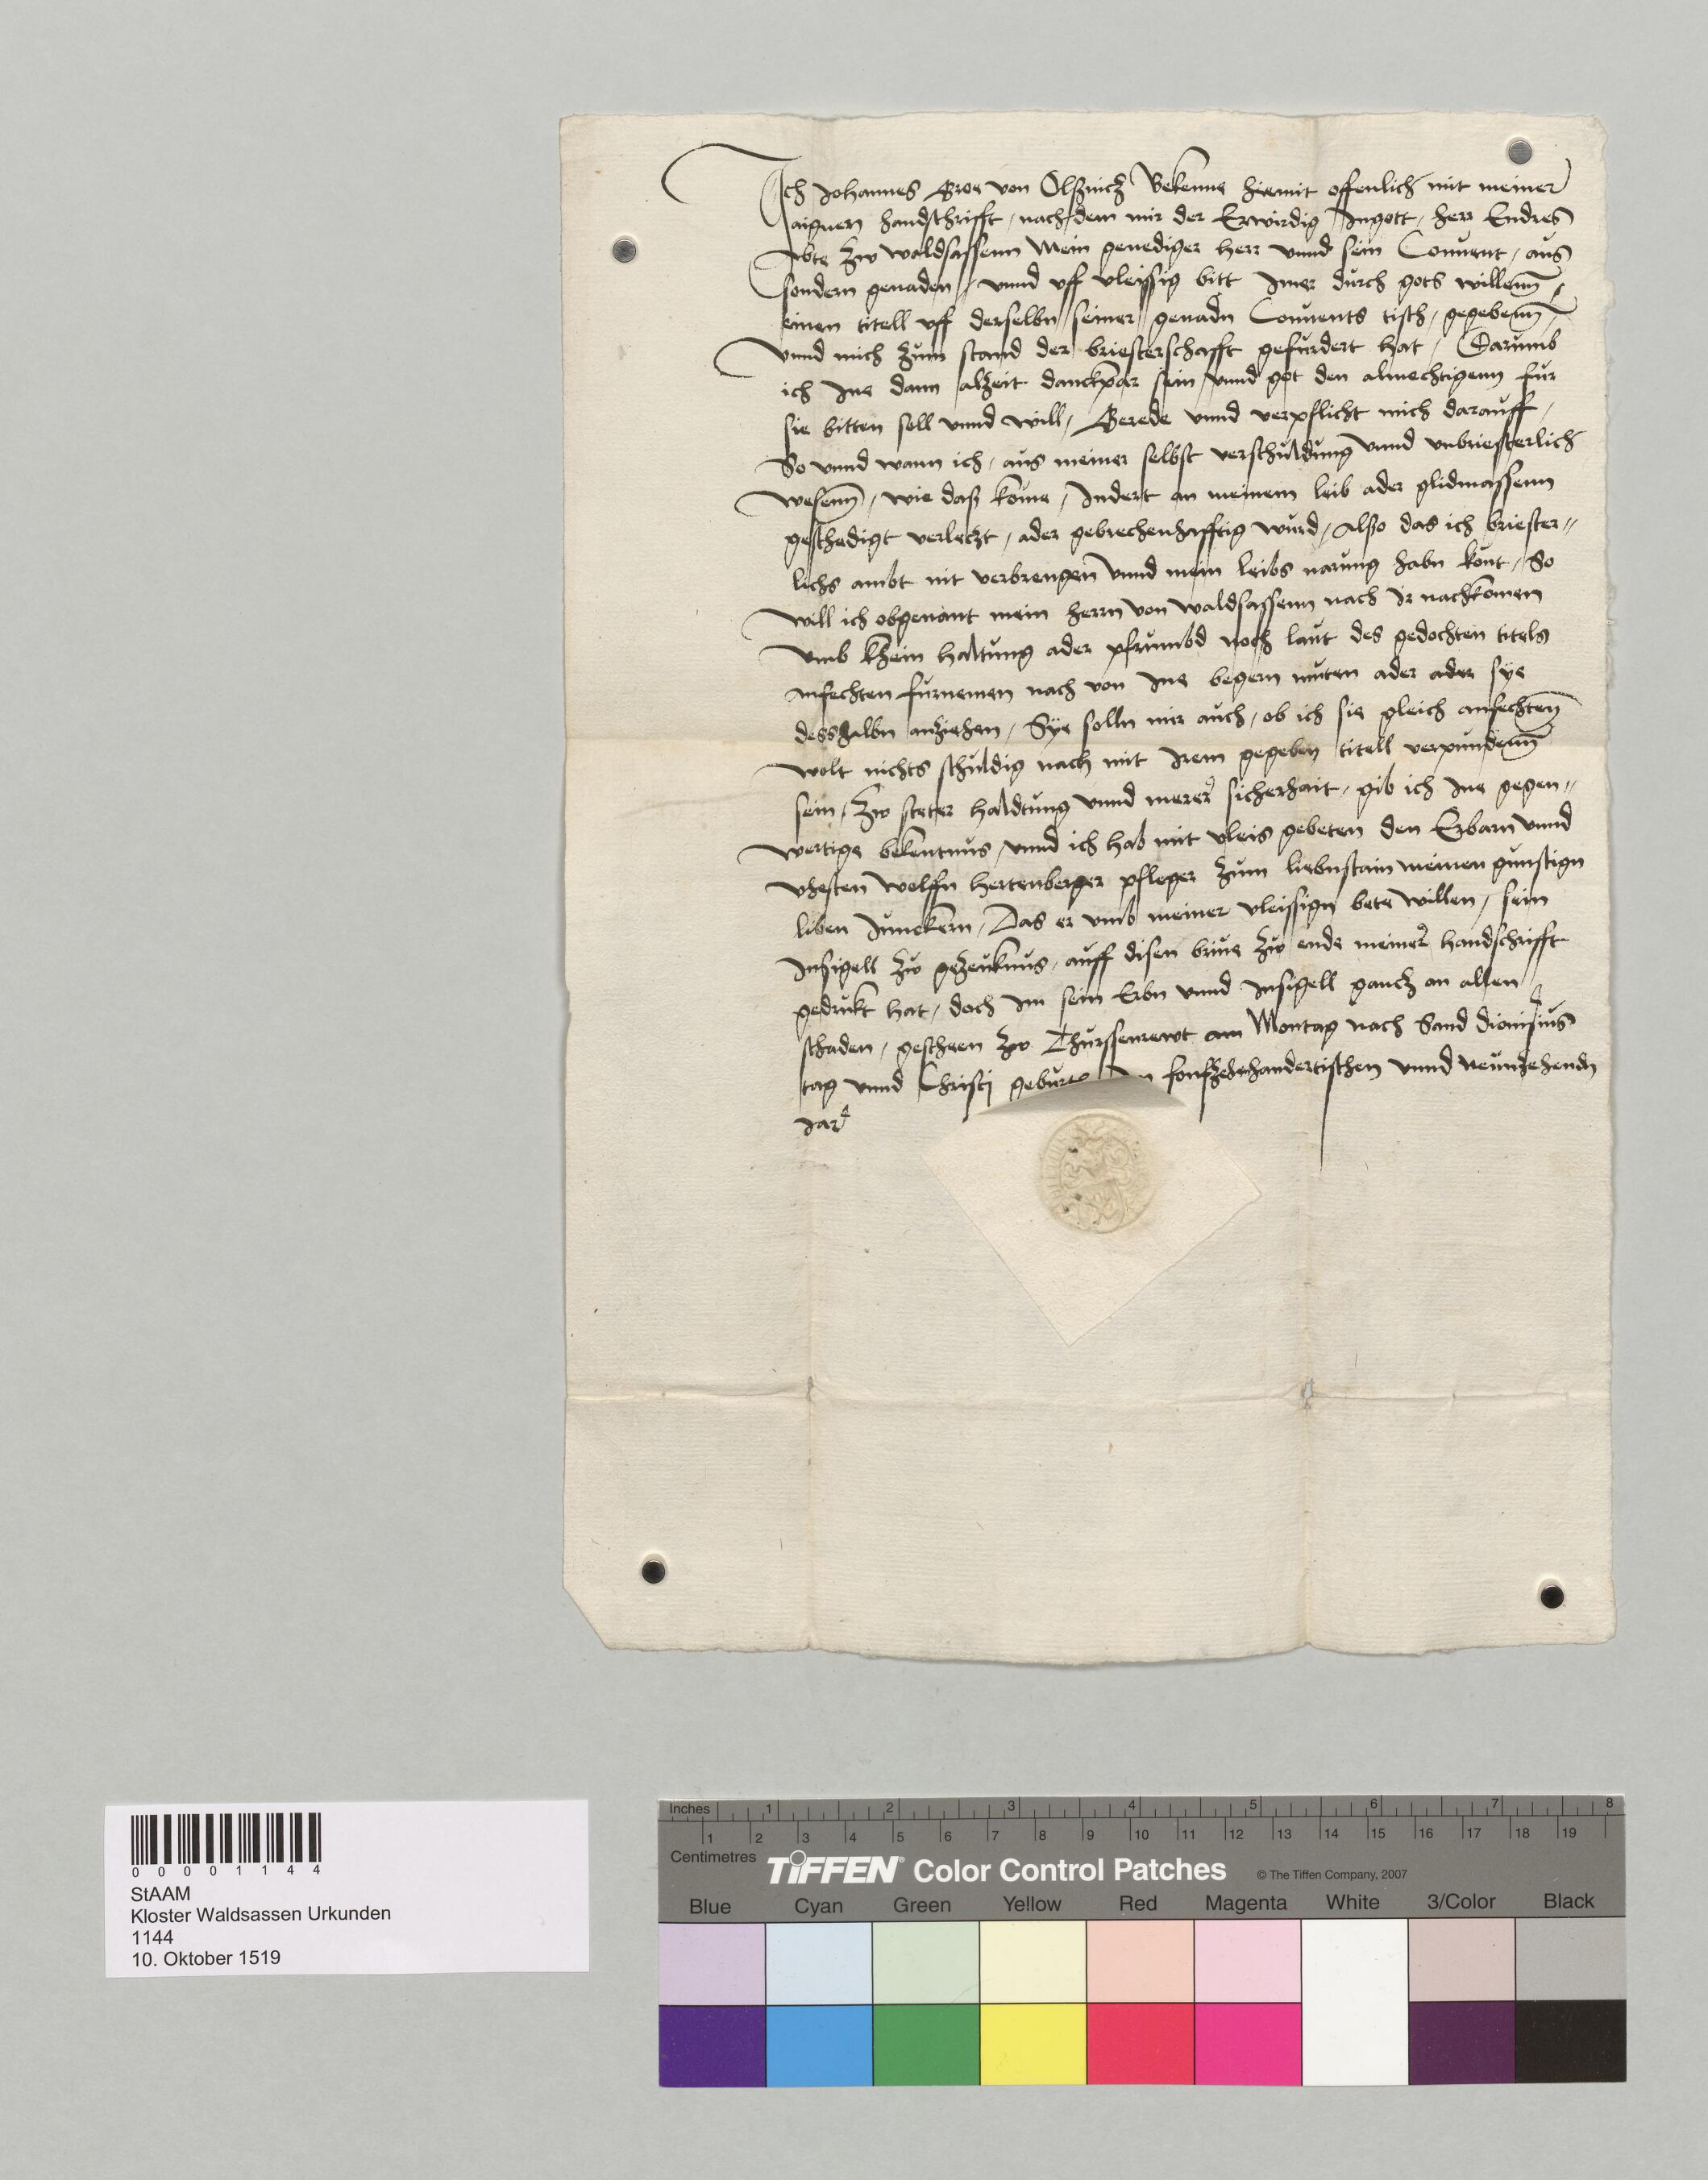 Ich Johannes Gros von Olßnicz Bekenne hiemit offenlich mit meiner
aignen handschrifft, nach dem mir der Erwirdig Ingott, herr Endres
Abte zw waldsassenn Mein genediger herr vnnd sein Conuent, aus
sondern genaden, vnnd vff vleissig bitt Imer durch gots willenn,
einen titell vff derselbn seiner genadn Conuents tisch, gegebenn,
Vnnd mich zum stand der briesterschafft gefurdert hat, Darumb
ich Ine dann alzeit danckpar sein, vnnd got den almechtigenn fur
sie bitten soll vnnd will, Gerede vnnd verpflicht mich darauff,
So vnnd wann ich, aus meiner selbst verschuldung vnnd vnbriesterlich
wesenn, wie daß kome, Indert an meinem leib ader glidmassenn
geschedigt verleczt, ader gebrechenhafftig wurd, Also das ich briester⸗
lichs ambt nit verbrengen vnnd mein leibs narung habn kont, So
will ich obgenant mein herrn von waldsassenn nach Ir nachkomen
vmb khein haltung ader pfrumbd noch laut des gedochten titels
anfechten furnemen nach von Ine begern muten ader ader sye
desshalbn anziehen, Sye solln mir auch, ob ich sie gleich anfechten
wolt nichts schuldig nach mit Irem gegeben titell verpundenn
sein, Zw steter haldtung vnnd merer sicherhait, gib ich Ine gegen⸗
wertige bekentnus, vnnd ich hab mit vleis gebeten den Erbarn vnnd
vhesten wolffn hertenberger pfleger zum liebnstain meinen gunstign
liben Junckern, Das er vmb meiner vleissign bete willen, sein
Insigell zw gezeuknus, auff disen brive zw ende meiner handschrifft
gedrukt hat, doch Im sein Erbn vnnd Insigell gancz an allen
schaden, gescheen zw Thurssenrewt am Montag nach Sand dionisius
tag vnnd Christj geburte Im fonfzehnhandertischen vnnd neunzehendn
Jar
0 0 0 0 1 1 4 4
StAAM
Kloster Waldsassen Urkunden
1144
10. Oktober 1519
Inches 1 2 3 4 5 6 7 8
1 2 3 4 5 6 7 8 9 10 11 12 13 14 15 16 17 18 19
Centimetres
TIFFEN® Color Control Patches © The Tiffen Company, 2007
Blue Cyan Green Yellow Red Magenta White 3/Color Black